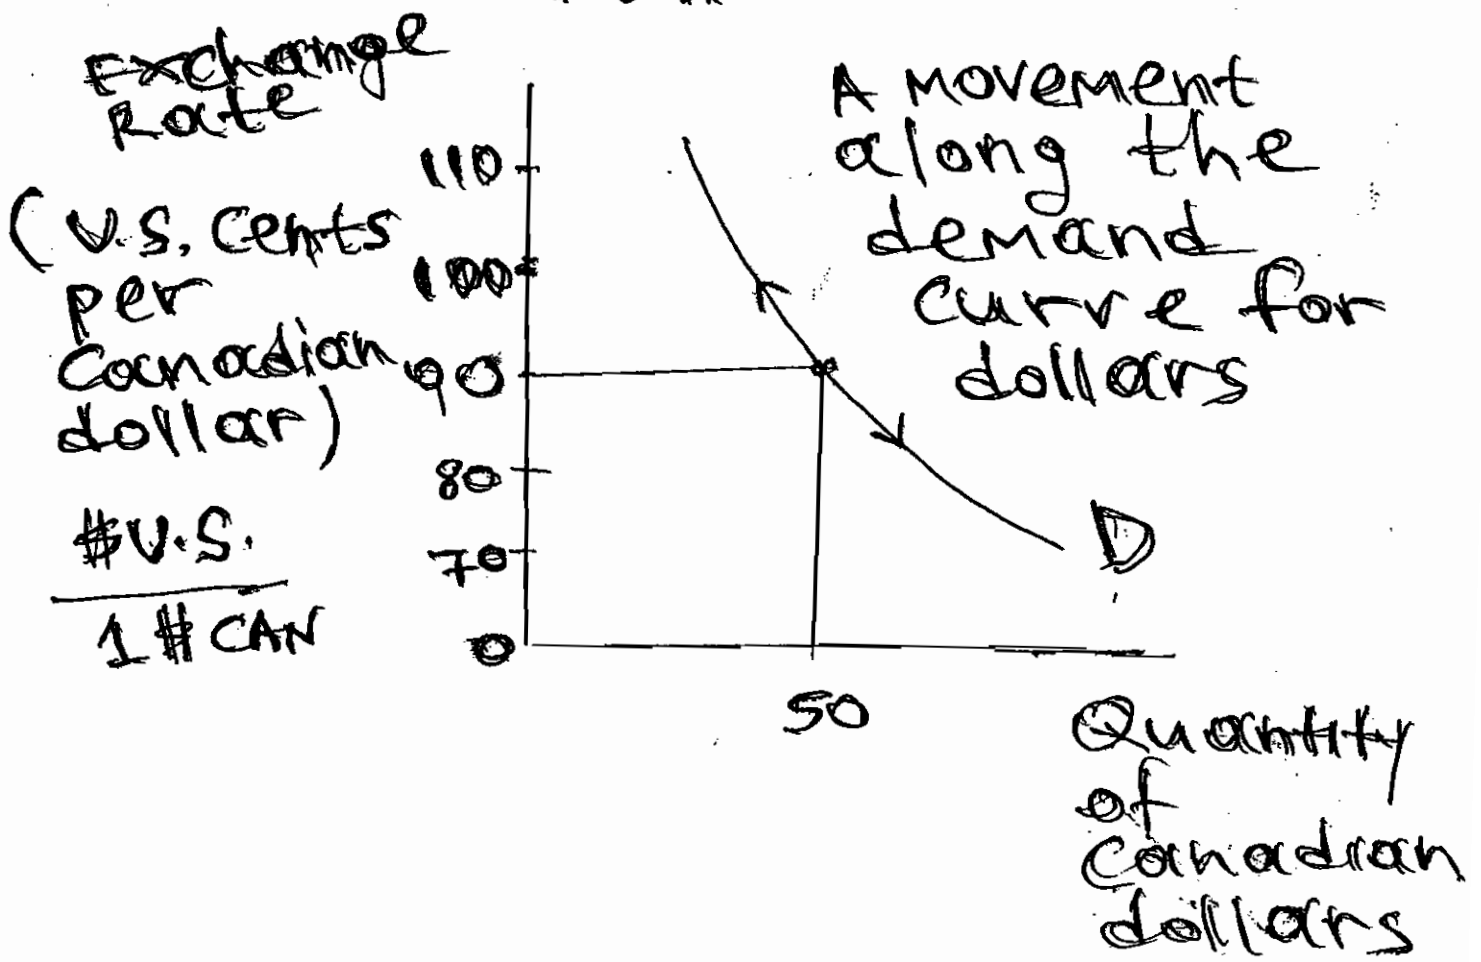 Exchange
Rate
(U.S. cents
per
Canadian
dollar)
#U.S.
1 # CAN
110
100
90
80
70
0
50
A Movement
along the
demand
curve for
dollars
D
Quantity
of
Canadian
dollars